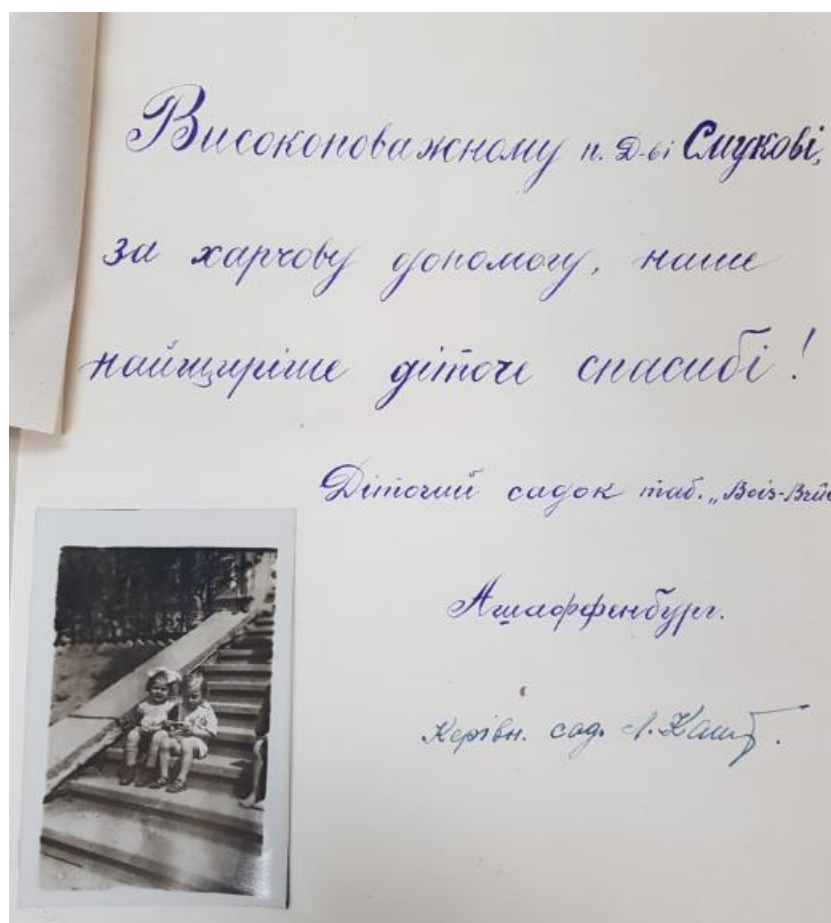 Високоповажному п. Д-ві Смукові,
за харчову допомогу, наше
найщиріше діточе спасибі!
Діточий садок таб. „Bois-Brûl
Ашаффенбург.
Керівн. сад. Л.